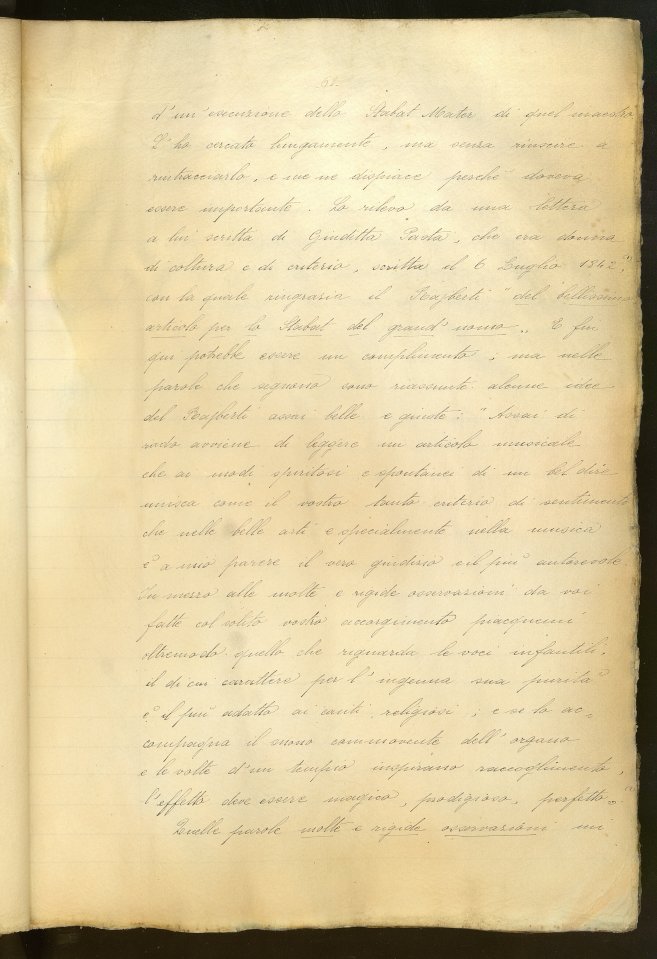 61.
d'un'esecuzione dello Stabat Mater di quel maestro
L'ho cercato lungamente, ma senza riuscire a
rintracciarlo, e me ne dispiace perchè doveva
essere importante. Lo rilevo da una lettera
a lui scritta di Giuditta Pasta, che era donna
di coltura e di criterio, scritta il 6 Luglio 1842,
con la quale ringrazia il Rajberti "del bellissimo
articolo per lo Stabat del grand'uomo„. E fin
qui potrebbe essere un complimento, ma nelle
parole che seguono sono riassunte alcune idee
del Rajberti assai belle e giuste: "Assai di
rado avviene di leggere un articolo musicale
che ai modi spiritosi e spontanei di un bel dire
unisca come il vostro tanto criterio di sentimento
che nelle belle arti e specialmente nella musica
è a mio parere il vero giudizio e il più autorevole.
In mezzo alle molte e rigide osservazioni da voi
fatte col solito vostro accorgimento piacquemi
oltremodo quello che riguarda le voci infantili,
il di cui carattere per l'ingenua sua purità
è il più adatto ai canti religiosi; e se lo ac-
compagna il suono commovente dell'organo
e le volte d'un tempio inspirano raccoglimento,
l'effetto deve essere magico, prodigioso, perfetto„.
Quelle parole molte e rigide osservazioni mi